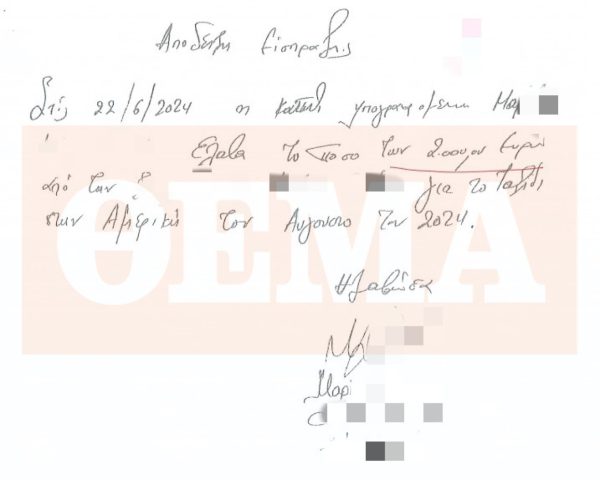 Αποδειξη Είσπραξης
Στις 22/6/2024 η κάτωθι υπογραφομενη Μαρ
Ελαβα το ποσο των Ευρώ
από την για το ταξίδι
στην Αμερική τον Αυγουστο του 2024.
Η λαβούσα
Μαρι
ΘΕΜΑ